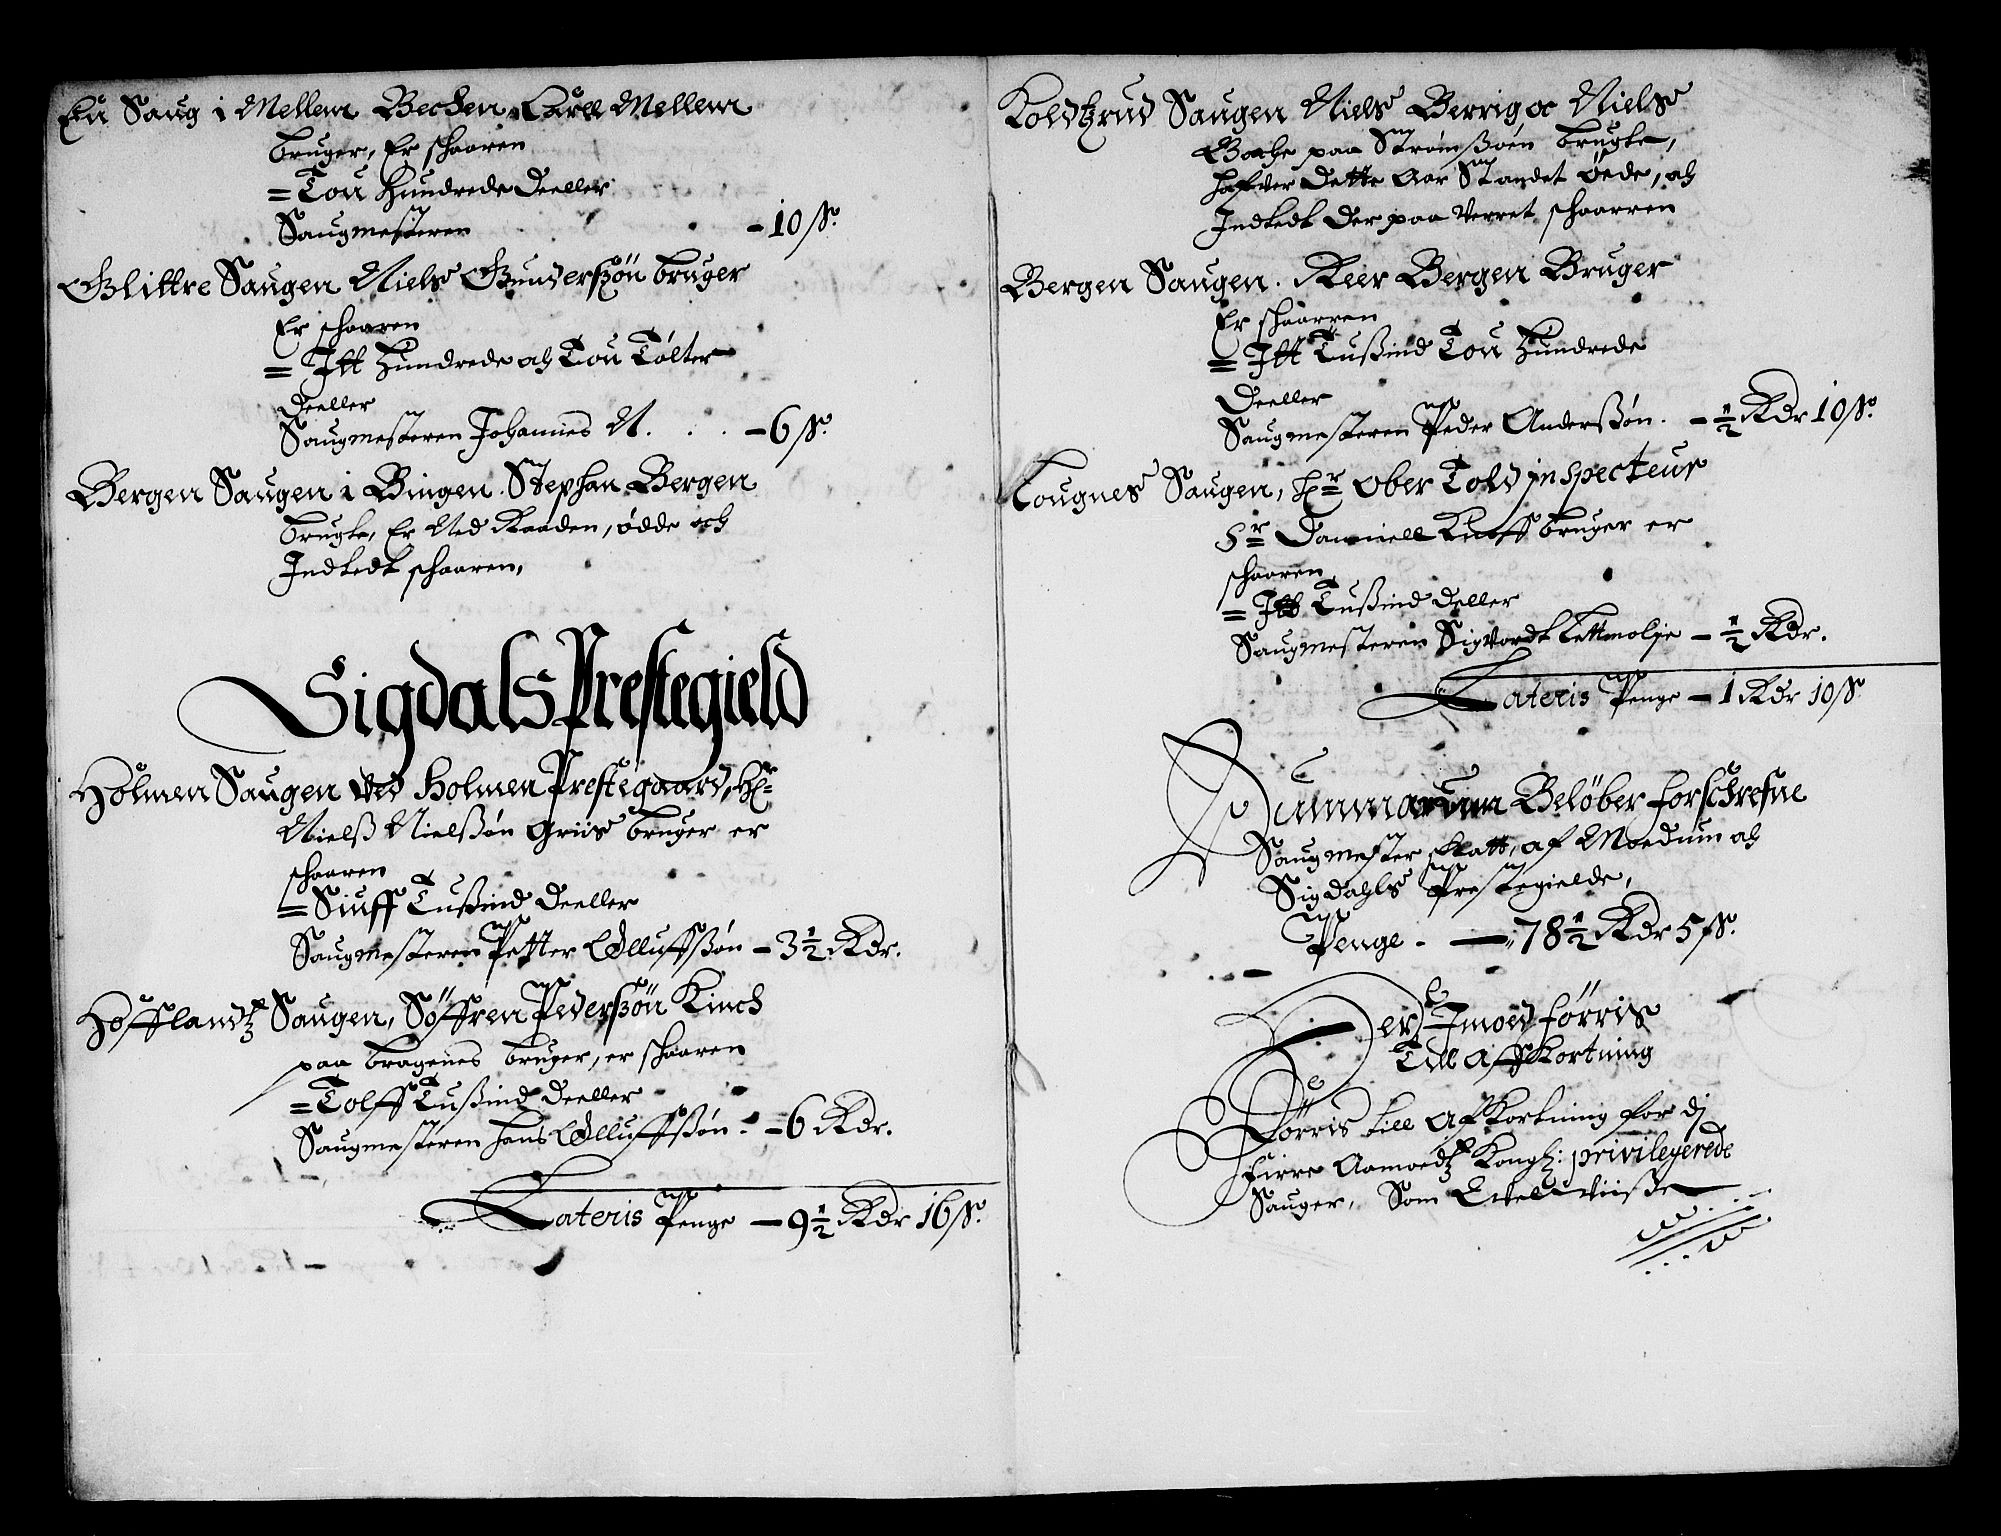 En Saug i Mellem Bechen Carll Mellem
bruger, Er schaaren
= Tou Hundrede Deeller
Saugmesteren - 10 ß.
Glittre Saugen Niels Gunderßøn bruger
Er schaaren
= Itt Hundrede och Tou Tølter
Deeller
Saugmesteren Johannes N. . . . - 6 ß.
Bergen Saugen i Bingen. Stephan Bergen
brugte, Er Ned Raaden, ødde och
Indtedt schaaren,
Sigdals Prestegield
Holmen Saugen Ved Holmen Prestegaard, Hr.
Nielß Nielßøn Griis bruger er
schaaren
= Siuff Tußind Deeller
Saugmesteren Petter Olluffßøn - 3½ Rdr.
Hofflandtz Saugen, Søffren Pederßøn Kinch
paa bragenes bruger, er schaaren
= Tolff Tußind Deeller
Saugmesteren Hans Olluffßøn. - 6 Rdr.
Lateris Penge - 9½ Rdr 16 ß.
Koldtzrud Saugen Niels Berrig oc Niels
paa Strømßøen brugte,
hafver Dette Aar Standet øede, och
Indtedt Der paa Verret schaarren
Bergen Saugen. Peer Bergen Bruger
Er schaarren
= Itt Tußind Tou Hundrede
Deeller
Saugmesteren Peder Anderßøn. - ½ Rdr 10 ß.
Lougnes Saugen, Hr. Ober Told inspecteur
Hr. Danniell Knoff bruger er
schaaren
= Itt Tußind Deller
Saugmesteren Sigvordt Kettmolje - ½ Rdr.
Lateris Penge - 1 Rdr 10 ß
Summarum Beløber forschrefne
Saugmester skatt, af Moedum och
Sigdahls Prestegielde,
Penge. - 78½ Rdr 5 ß.
Der Imoed førris
Till Affkortning
Førris till Afkortning for di
firre Aamoedtz Kongl: privilegerede
Sauger, Som Ertelwiiße